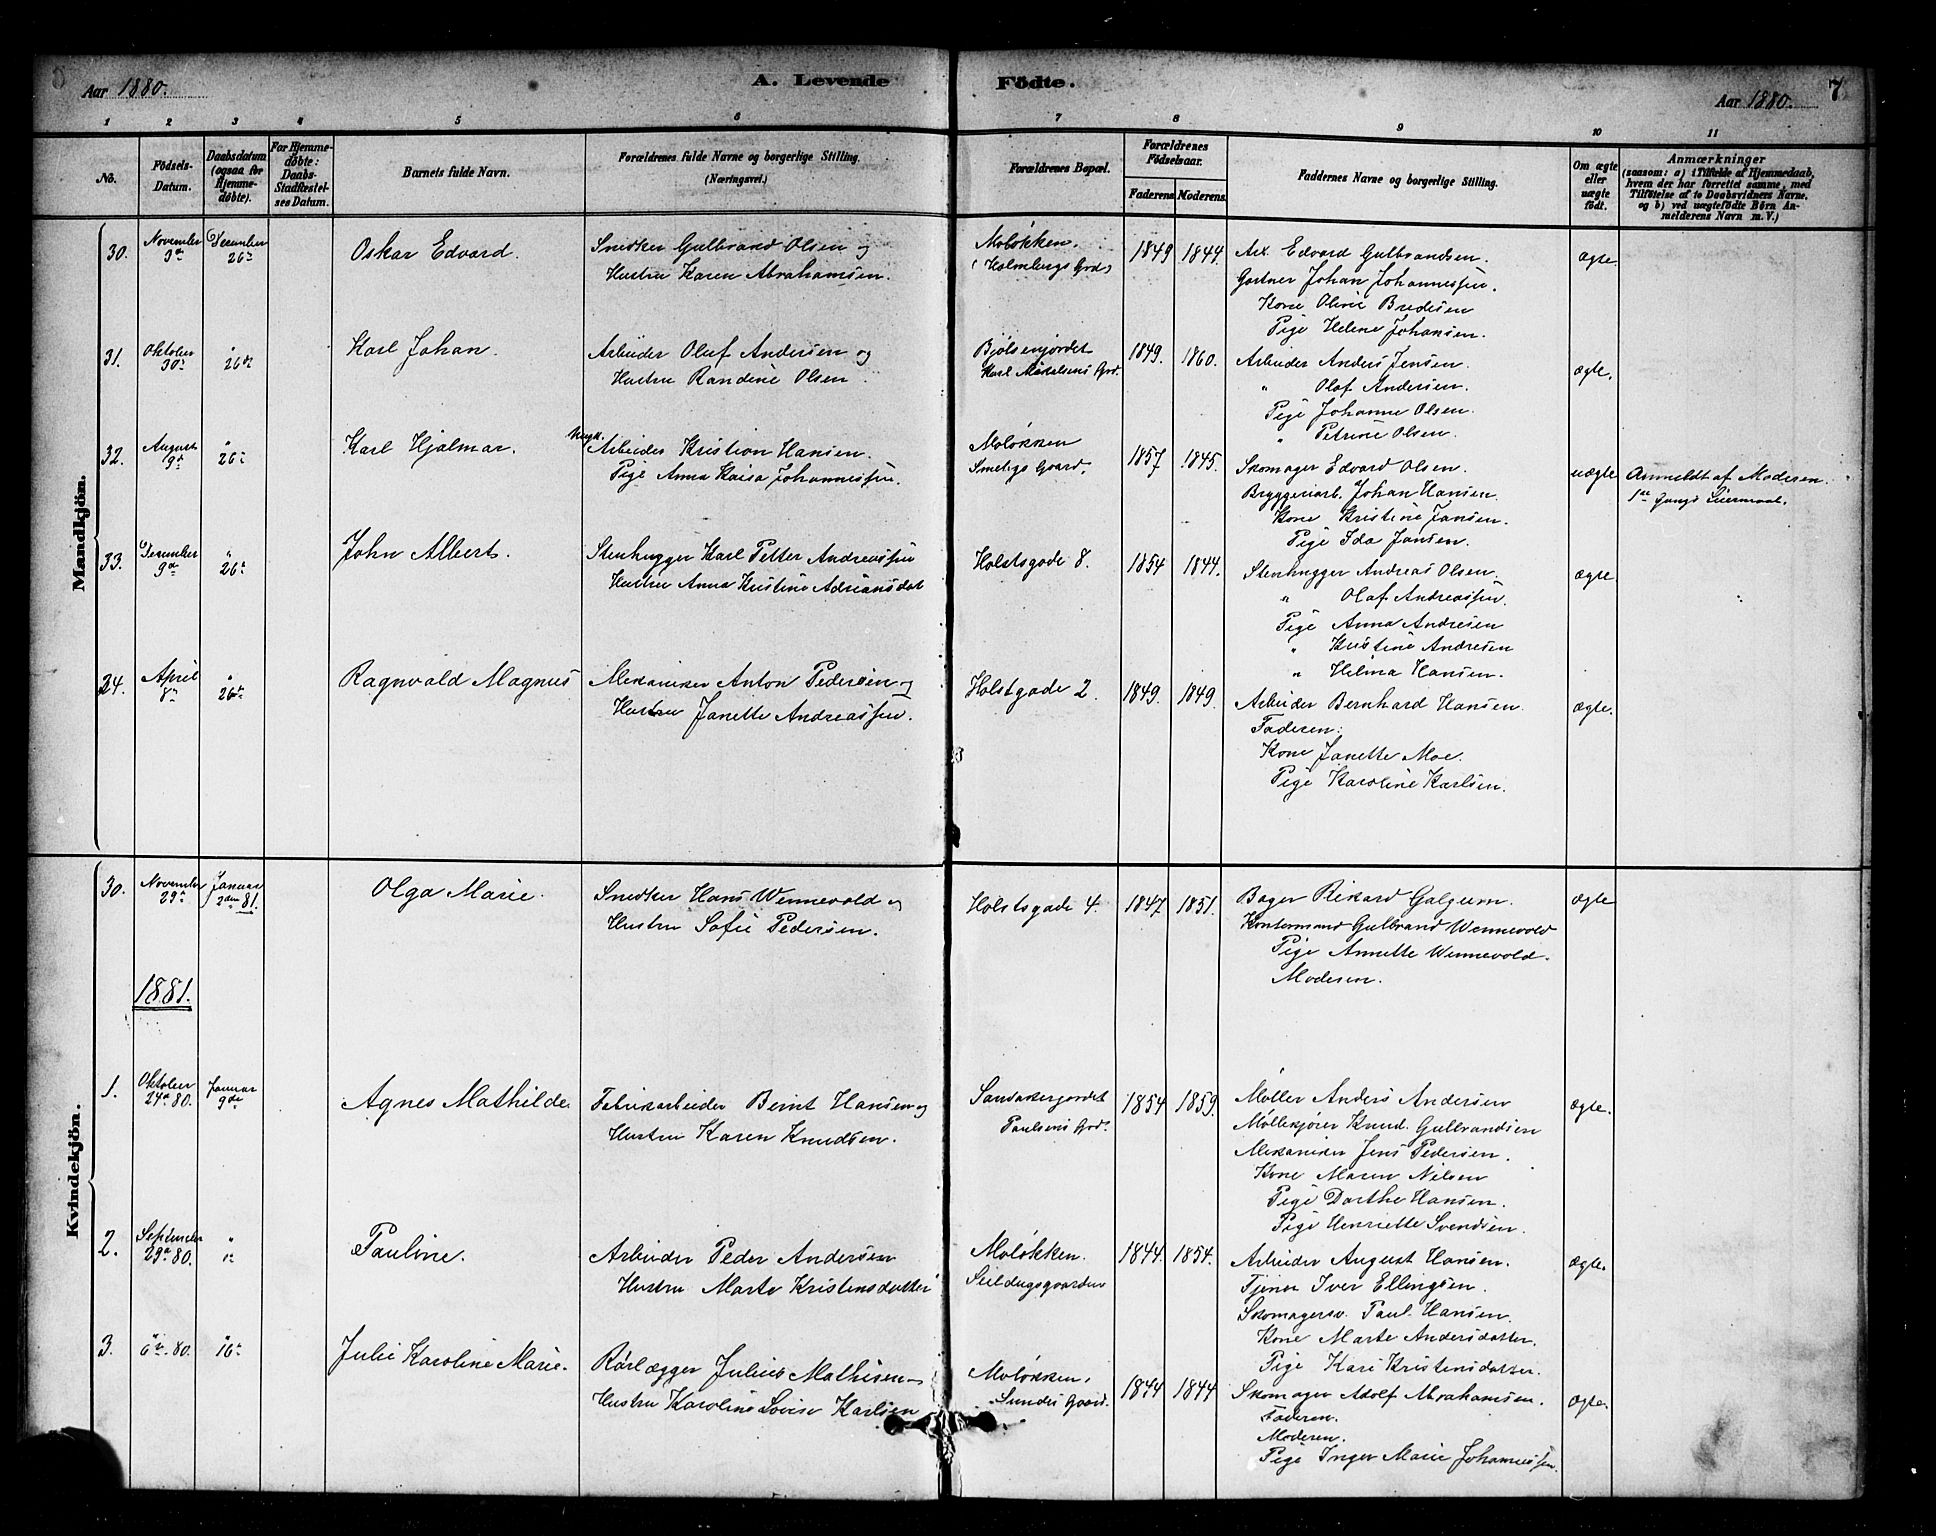 Aar 1880. A. Levende Födte. Aar 1880. 7
1 2 3 4 5 6 7 8 9 10 11
No.
Födsels-Datum.
Daabsdatum (ogsaa for Hjemme-döbte).
For Hjemme-döbte: Daabs-Stadfæstel-ses Datum.
Barnets fulde Navn.
Forældrenes fulde Navne og borgerlige Stilling.
(Næringsvei.)
Forældrenes Bopæl.
Forældrenes Födselsaar.
Faderens Moderens.
Faddernes Navne og borgerlige Stilling.
Om ægte eller uægte födt.
Anmærkninger
(saasom: a) i Tilfælde af Hjemmedaab,
hvem der har forrettet samme, med
Tilföielse af to Daabsvidners Navne,
og b) ved uægtefödte Börn An-
melderens Navn m. V.)
Mandkjön.
30. November 9de December 26de Oskar Edvard. Snedker Gulbrand Olsen og Moløkken. 1849 1844. Arb. Edvard Gulbrandsen. ægte.
Hustru Karen Abrahamsen. Holmbergs Grd.
Gartner Johan Johannessen.
Kone Oline Bredesen
Pige Helene Johansen.
31. Oktober 30te " 26de Karl Johan. Arbeider Oluf Andersen og Bjølsenjordet 1849. 1860. Arbeider Anders Jensen. ægte.
Hustru Randine Olsen.
" Olaf Andersen.
Pige Johanne Olsen.
" Petrine Olsen.
32. August 9de " 26de Karl Hjalmar. Ungk. Arbeider Kristian Hansen. Moløkken 1857 1845. Skomager Edvard Olsen. uægte Anmeldt af Moderen.
Pige Anna Kaisa Johannessen. Smeligs Gaard.
1ste Gangs Leiermaal.
Bryggeriarb. Johan Hansen.
Kone Kristine Jansen.
Pige Ida Jansen.
33. December 9de " 26de John Albert. Stenhugger Karl Petter Andreassen Holstsgade 8. 1854 1844. Stenhugger Andreas Olsen. ægte
Hustru Anna Kristine Adriansdat
" Olaf Andreassen.
Pige Anna Andresen
" Kristine Andresen
" Helma Hansen.
34. April 8de " 26de Ragnvald Magnus Mekaniker Anton Pedersen og Holstgade 2. 1849. 1849. Arbeider Bernhard Hansen. ægte.
Hustru Janette Andreassen.
Faderen.
Kone Janette Moe.
Pige Karoline Karlsen.
Kvindekjön.
30. November 29de Januar 2den 81. Olga Marie. Snedker Hans Wennevold og Holstsgade 4. 1847 1851. Bager Rikard Galgum. ægte
Hustru Sofie Pedersen.
Kontormand Gulbrand Wennevold
Pige Annette Wennevold.
Moderen.
1881.
1. Oktober 24de 80. Januar 9de Agnes Mathilde. Fabrikarbeider Bernt Hansen og Sandakerjordet 1854 1859. Møller Anders Andersen ægte.
Hustru Karen Knudsen. Paulsens Grd.
Møllekjører Knud Gulbrandsen
Mekaniker Jens Pedersen.
Kone Maren Nilsen
Pige Dorthe Hansen.
Pige Henriette Svendsen.
2. September 29de 80. " " Pauline. Arbeider Peder Andersen Moløkken. 1844. 1854. Arbeider August Hansen. ægte.
Hustru Marte Kristensdatter Seildugsgaarden
Tjener Iver Ellingsen.
Skomagersv. Paul Hansen.
Kone Marte Andersdatter.
Pige Kari Kristensdatter.
3. " 6te 80. " 16de Julie Karoline Marie. Rørlægger Julius Mathisen Moløkken, 1844 1844 Skomager Adolf Abrahamsen. ægte.
Hustru Karoline Lovise Karlsen Sundes Gaard.
Faderen.
Moderen.
Pige Inger Marie Johannessen.